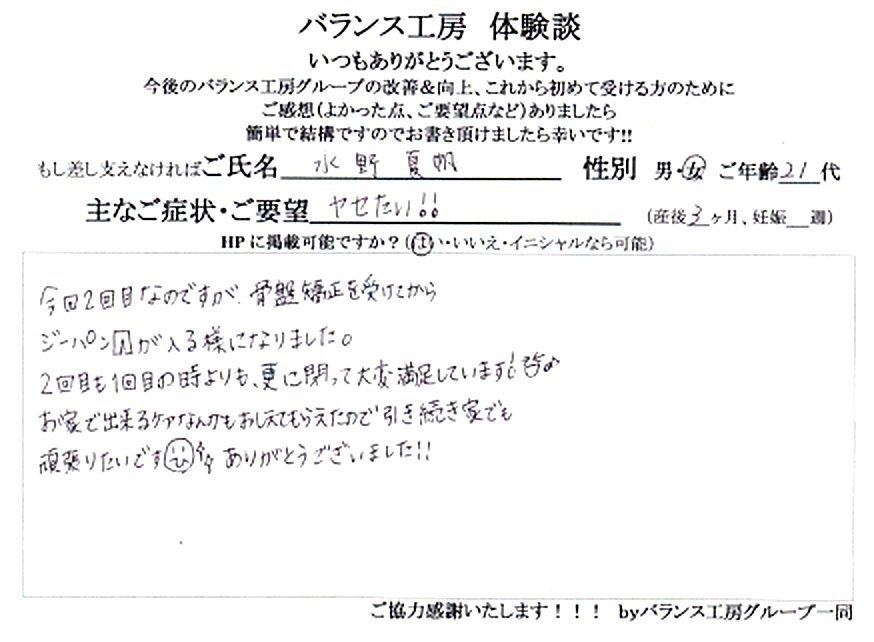 バランス工房 体験談
いつもありがとうございます。
今後のバランス工房グループの改善&向上、これから初めて受ける方のために
ご感想(よかった点、ご要望点など)ありましたら
簡単で結構ですのでお書き頂けましたら幸いです!!
もし差し支えなければご氏名 水野 夏帆 性別 男・女 ご年齢21代
主なご症状・ご要望 ヤセたい!! (産後3ヶ月、妊娠__週)
HPに掲載可能ですか?(はい・いいえ・イニシャルなら可能)
今回2回目なのですが、骨盤矯正を受けてから
ジーパンが入る様になりました。
2回目も1回目の時よりも、更に閉って大変満足しています!
お家で出来るケアなんかもおしえてもらえたので引き続き家でも
頑張りたいです ありがとうございました!!
ご協力感謝いたします!!! byバランス工房グループ一同